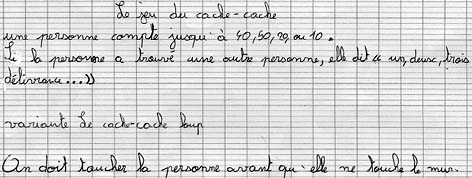 Le jeu du cache-cache
une personne compte jusqu'à 40,50,20, ou 10.
Si la personne a trouvé une autre personne, elle dit « un, deux, trois
délivrance...))
variante Le cache-cache loup
On doit toucher la personne avant qu'elle ne touche le mur.